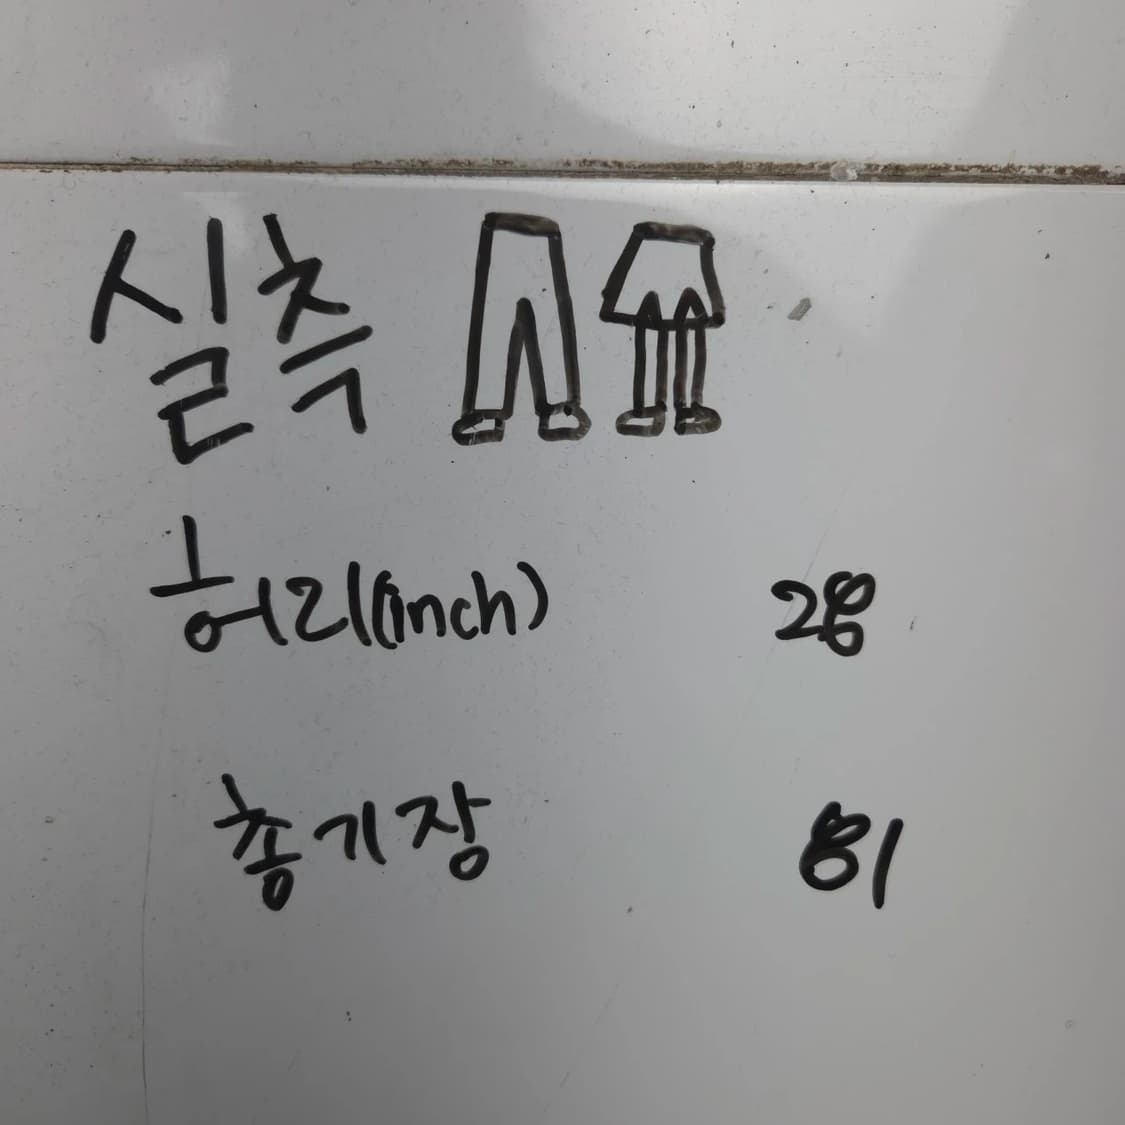 실측
허리(inch) 28
총기장 81